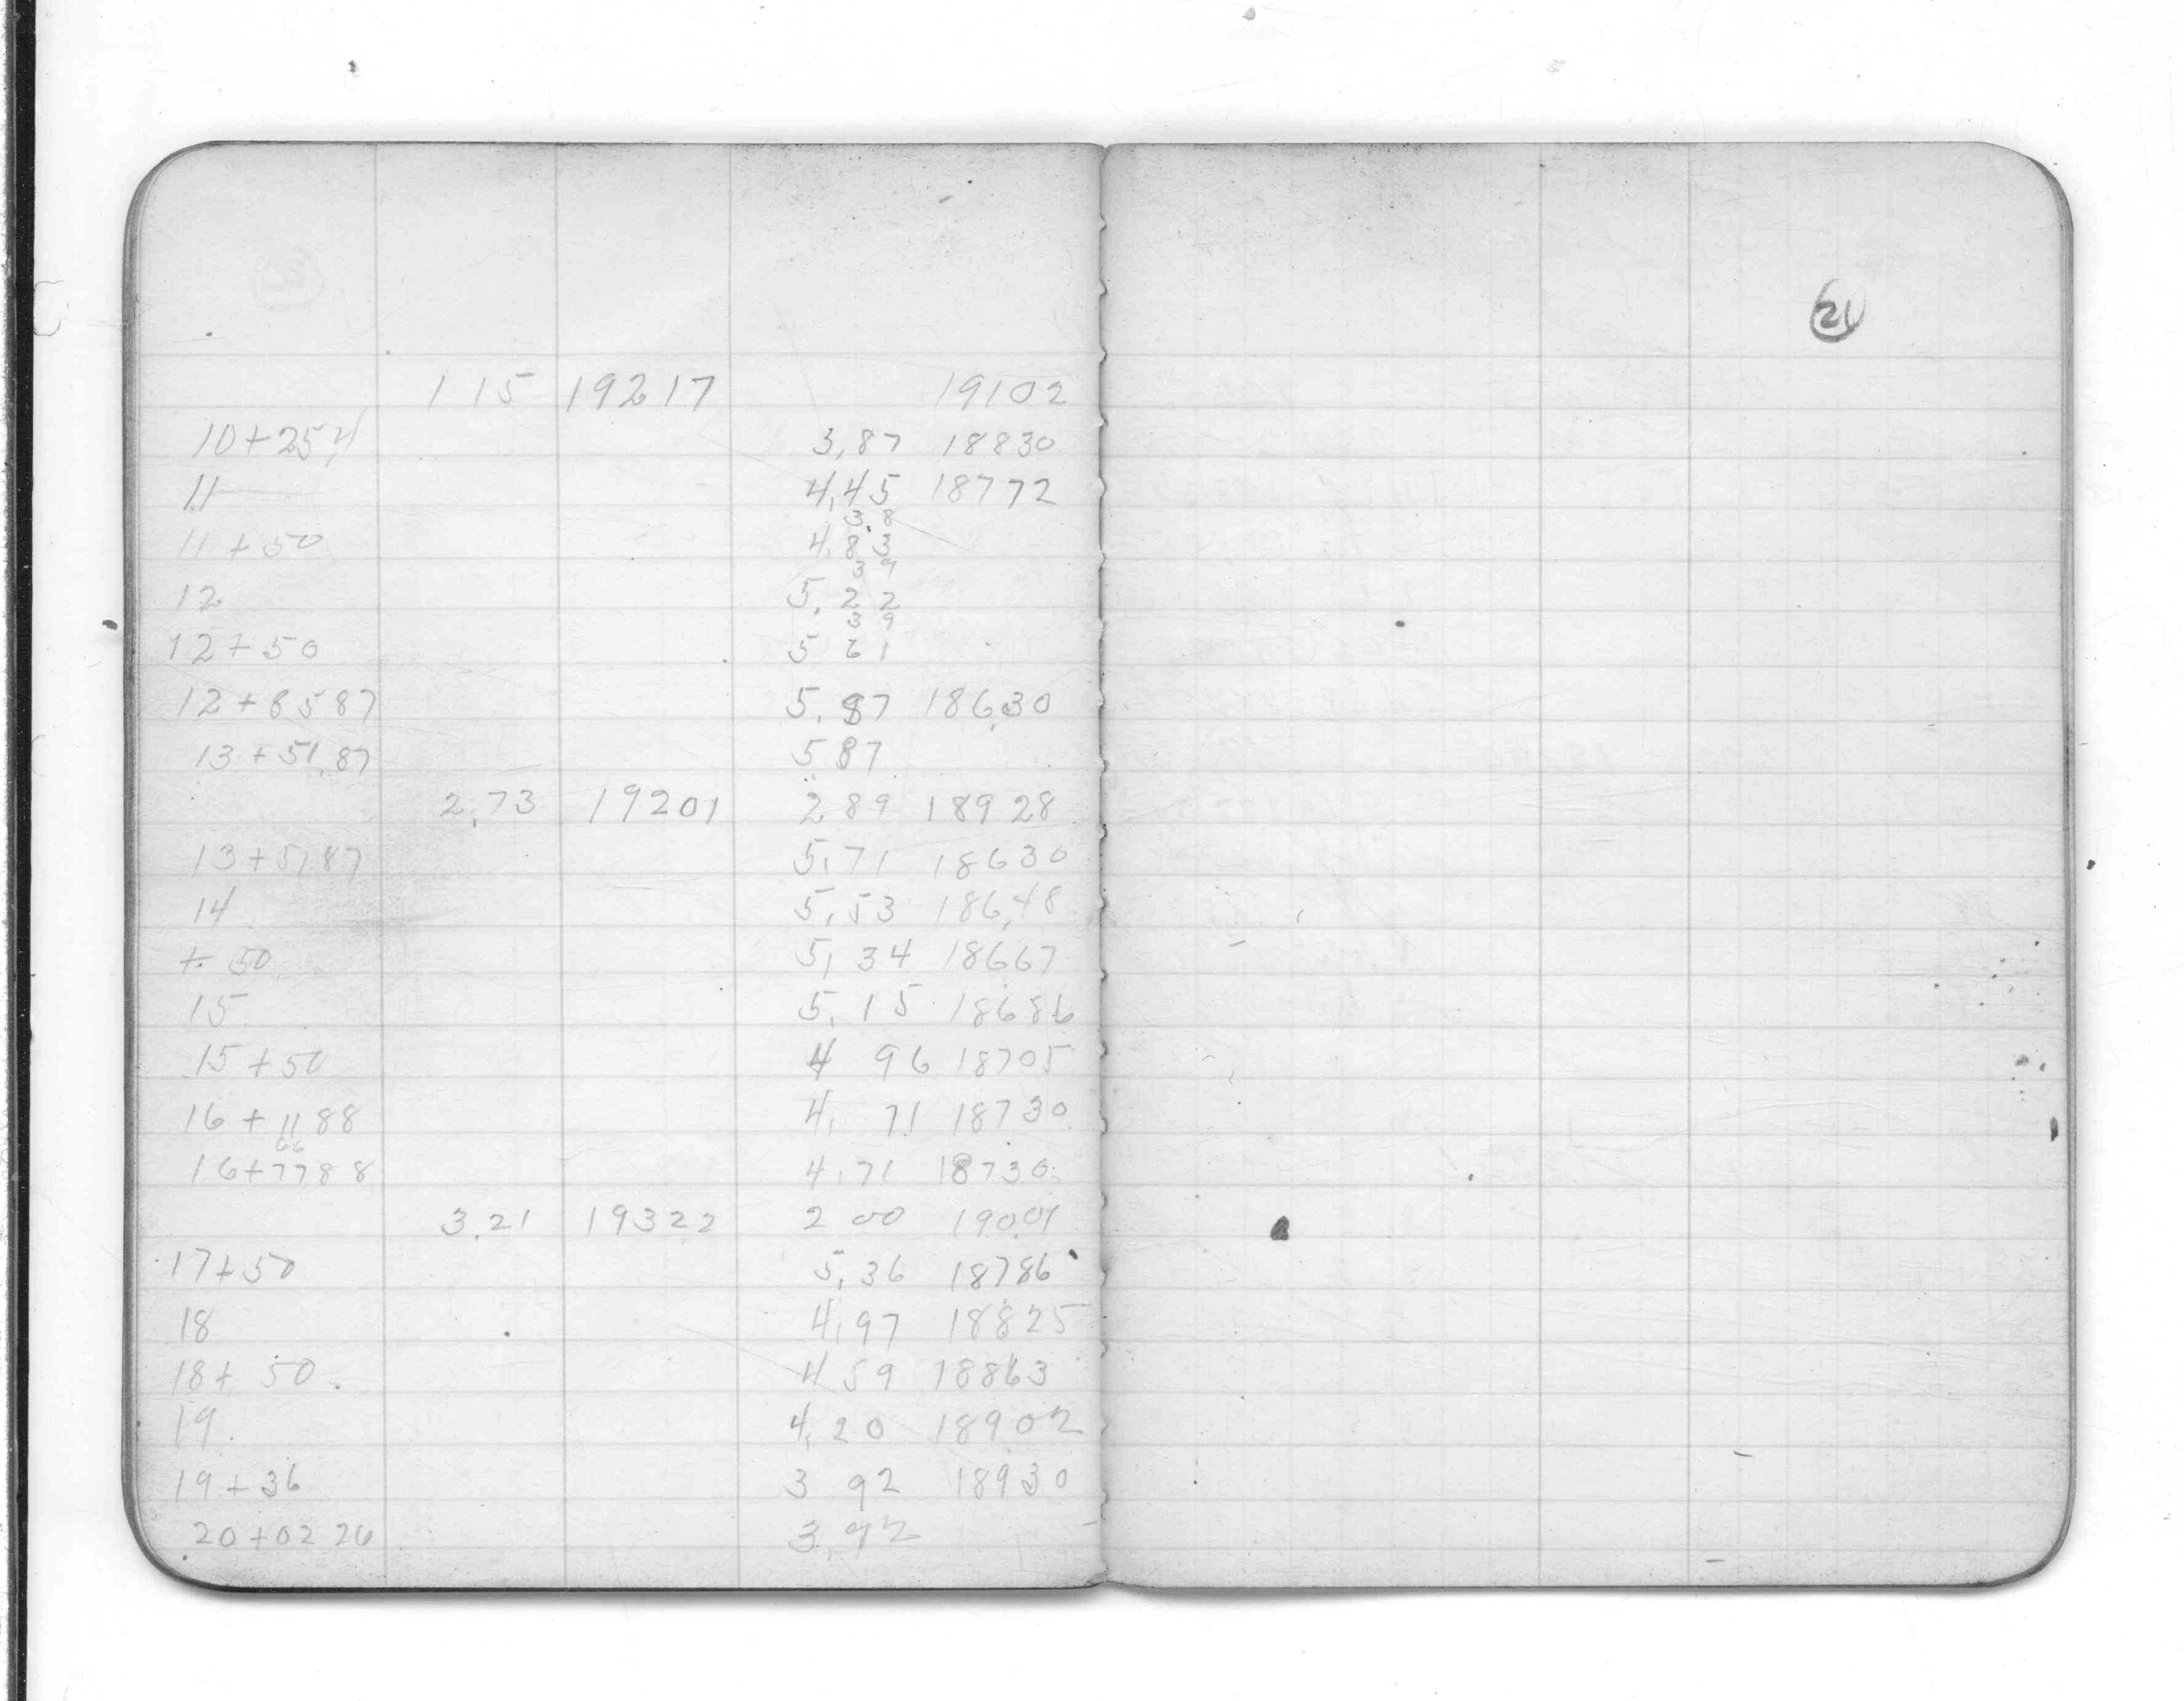 21
1 15 19217 19102
10+25 4 3,87 18830
11 4,45 18772
3 8
11+50 4,83
3 9
12 5.22
3 9
12+50 5 61
12+8587 5.87 186.30
13+51.87 587
2.73 19201 289 18928
13+5187 5,71 18630
14 5,53 186,48
+50 5, 34 18667
15 5, 15 18686
15+50 4 96 18705
16+1188 4, 71 18730
66
16+7788 4,71 18730
3.21 19322 2 00 190.01
17+50 5,36 18786
18 4,97 18825
18+50. 4 59 18863
19. 4,20 18902
19+36 3 92 18930
20+02 26 3.92